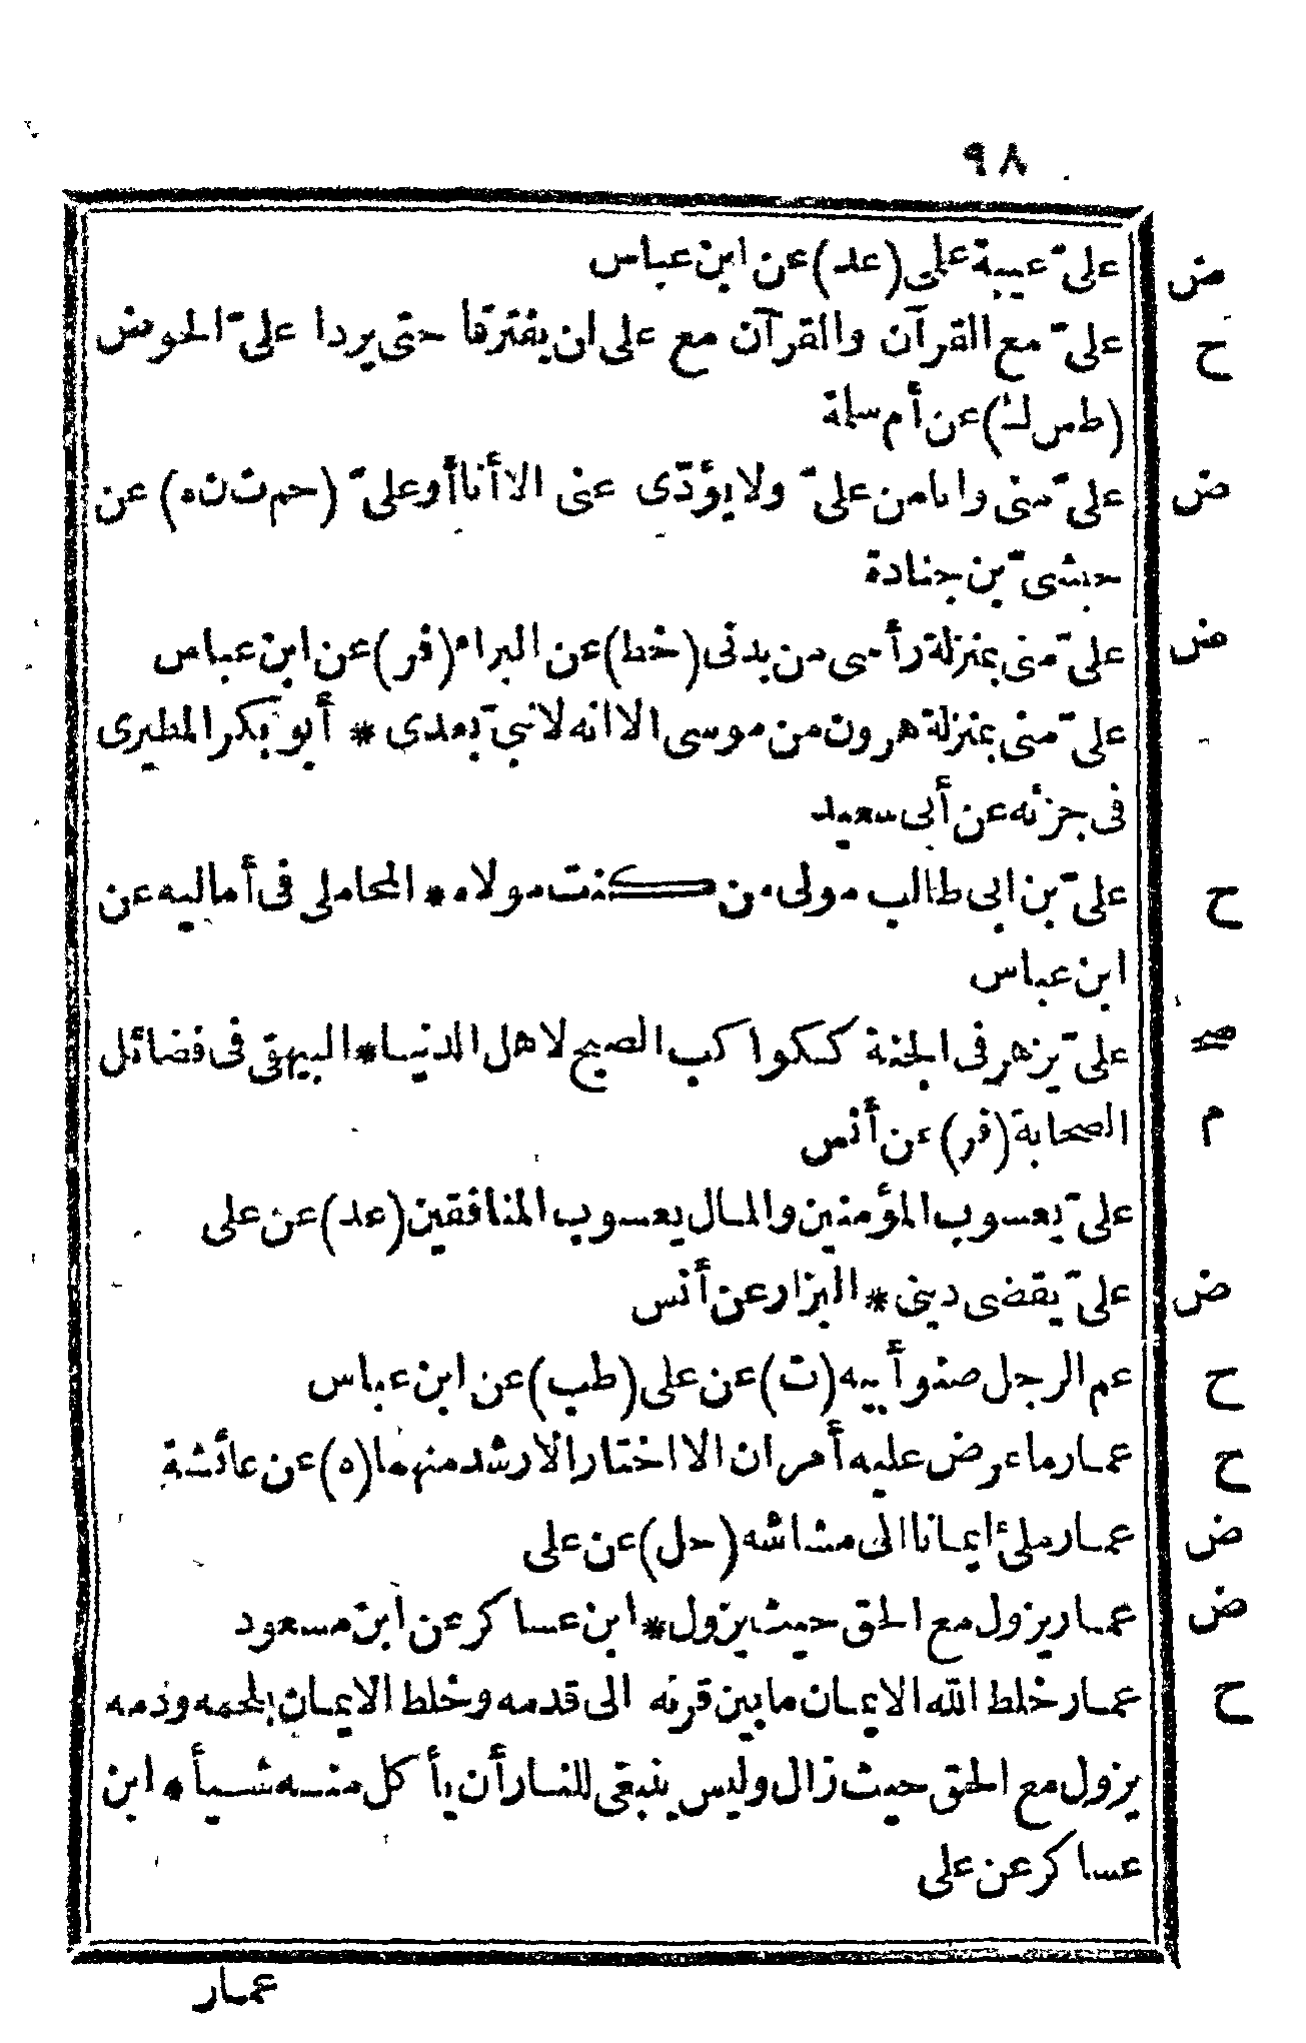 ٩٨
ض علىّ عيبة على (عد) عن ابن عباس
ح علىّ مع القرآن والقرآن مع على لن يفترقا حتى يردا علىّ الحوض
(طس ك) عن أم سلمة
ض علىّ منى وانا من علىّ ولا يؤدّى عنى الا أنا أو علىّ (حم ت ن ه) عن
حبشىّ بن جنادة
ض علىّ منى بمنزلة رأسى من بدنى (خط) عن البراء (فر) عن ابن عباس
علىّ منى بمنزلة هرون من موسى الا انه لا نبىّ بعدى * أبو بكر المطيرى
فى جزئه عن أبى سعيد
ح علىّ بن ابى طالب مولى من كنت مولاه * المحاملى فى أماليه عن
ابن عباس
صح علىّ يزهر فى الجنة ككواكب الصبح لاهل الدنيا * البيهقى فى فضائل
م الصحابة (فر) عن أنس
علىّ يعسوب المؤمنين والمال يعسوب المنافقين (عد) عن على
ض علىّ يقضى دينى * البزار عن أنس
ح عم الرجل صنو أبيه (ت) عن على (طب) عن ابن عباس
ح عمار ما عرض عليه أمران الا اختار الارشد منهما (ه) عن عائشة
ض عمار ملئ ايمانا الى مشاشه (حل) عن على
ض عمار يزول مع الحق حيث يزول * ابن عساكر عن ابن مسعود
ح عمار خلط الله الايمان ما بين قرنه الى قدمه وخلط الايمان بلحمه ودمه
يزول مع الحق حيث زال وليس ينبغى للنار أن يأكل منه شيأ * ابن
عساكر عن على
عمار